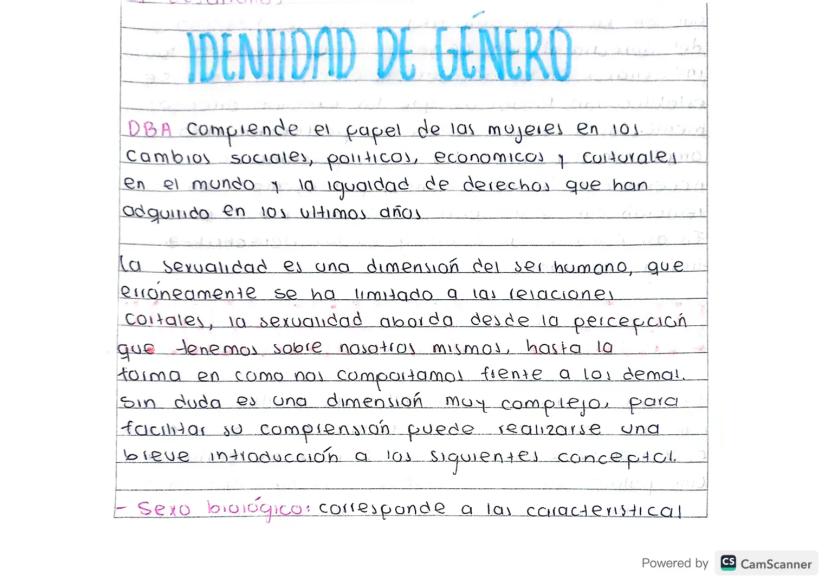 IDENTIDAD DE GÉNERO
DBA comprende el papel de las mujeres en los
cambios sociales, politicos, economicos y culturales
en el mundo y la igualdad de derechos que han
adquirido en los ultimos años
La sexualidad es una dimensión del ser humano, que
erróneamente se ha limitado a las relaciones
coitales, la sexualidad aborda desde la percepción
que tenemos sobre nosotros mismos, hasta la
forma en como nos comportamos frente a los demas.
Sin duda es una dimensión muy complejo, para
facilitar su comprensión puede realizarse una
breve introducción a los siguientes conceptos.
- Sexo biológico: corresponde a las caracteristicas
Powered by CS CamScanner